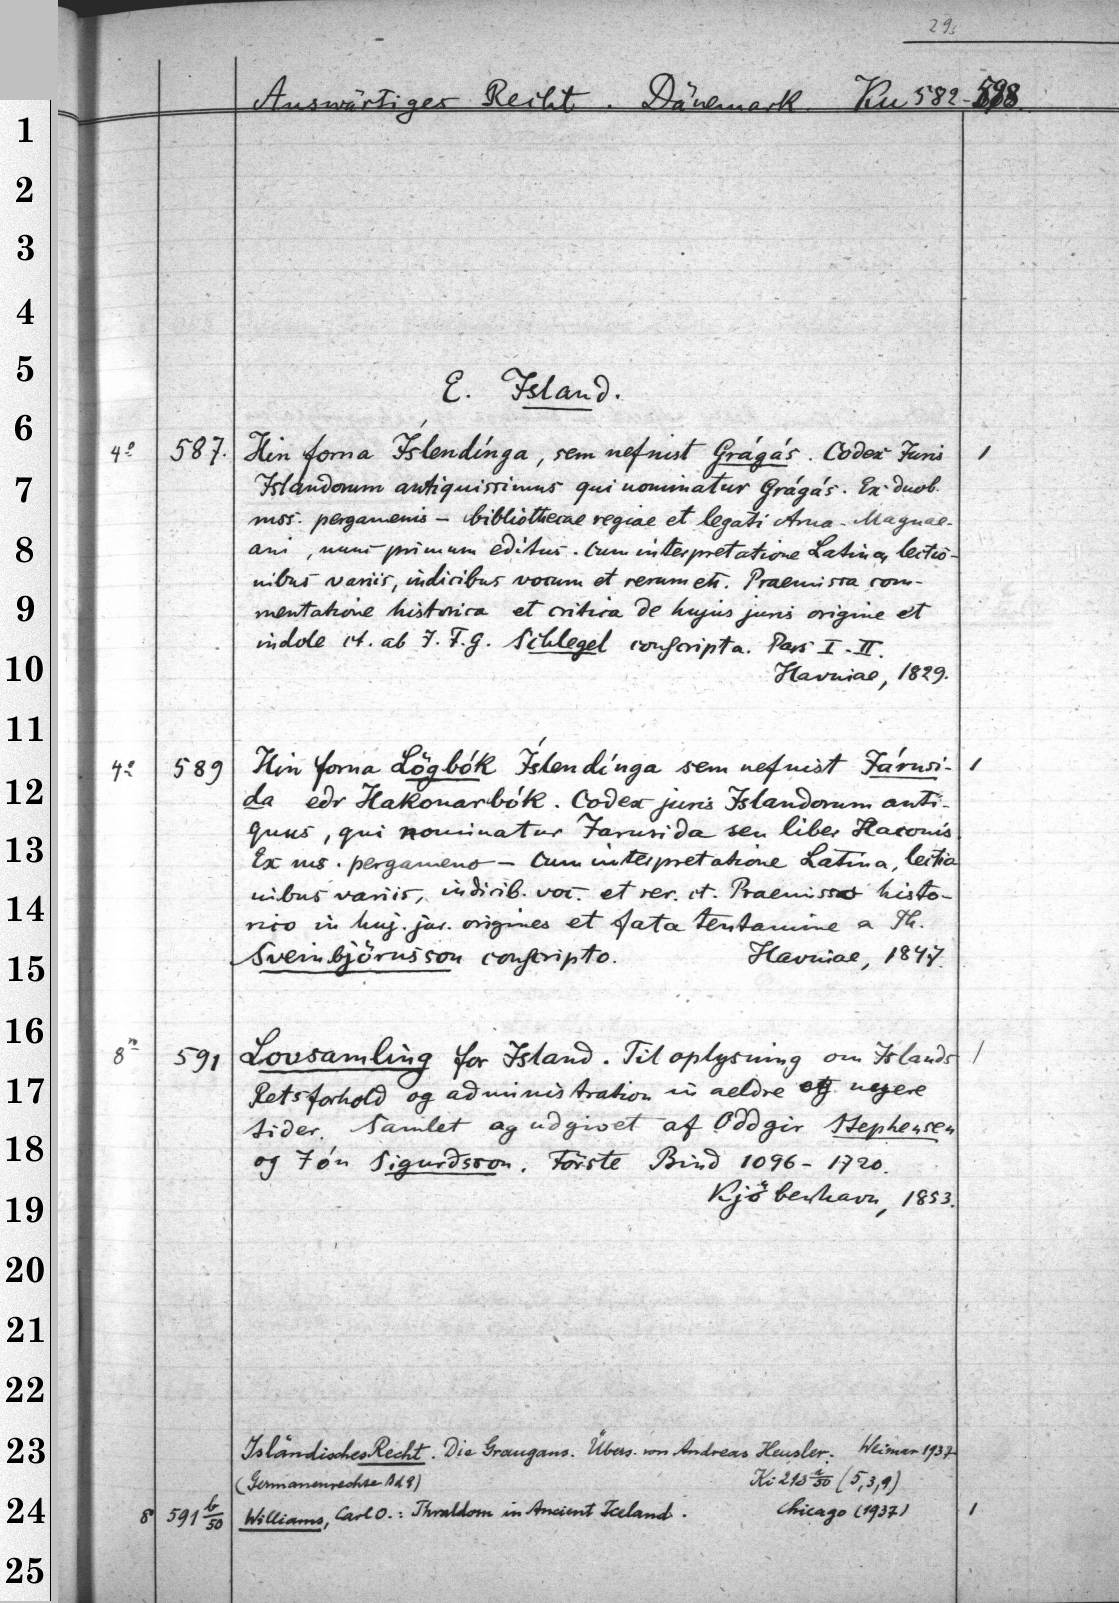 29
Auswärtiges Recht. Dänemark. Ku 582-598
1
2
3
4
5
E. Island.
6
4º 587. Hin forna Íslendínga, sem nefnist Grágás. Codex Juris 1
7
Islandorum antiquissimus qui nominatur Grágás. Ex duob.
mss. pergamenis – bibliothecae regiae et legati Arna-Magnae-
8
ani, nunc primum editus. Cum interpretatione Latina, lectio-
nibus variis, indicibus vocum et rerum etc. Praemissa com-
9
mentatione historica et critica de hujus juris origine et
indole ct. ab J. F. G. Schlegel conscripta. Pars I-II.
10
Havniae, 1829.
11
4º 589 Hin forna Lögbók Íslendínga sem nefnist Járnsi- 1
12
da edr Hakonarbók. Codex juris Islandorum anti-
quus, qui nominatur Jarnsida seu liber Haconis.
13
Ex ms. pergameno – Cum interpretatione Latina, lectio
nibus variis, indicib. voc. et rer. ct. Praemisso histo-
14
rico in huj. jur. origines et fata tentamine a Th.
Sveinbjörnsson conscripto. Havniae, 1847.
15
16
8º 591 Lovsamling for Island. Til oplysning om Islands 1
17
Retsforhold og administration in aeldre og nyere
tider. Samlet ag udgivet af Oddgir Stephensen
18
og Jón Sigurdsson. Förste Bind 1096-1720.
19
Kjöbenhavn, 1853.
20
21
22
23
Isländisches Recht. Die Graugans. Übers. von Andreas Heusler. Weimar 1937
(Germanenrechte Bd 9) Ki 213 a/50 (5,3,9)
24
8 591 b/50 Williams, Carl O.: Thraldom in Ancient Iceland. Chicago (1937) 1
25